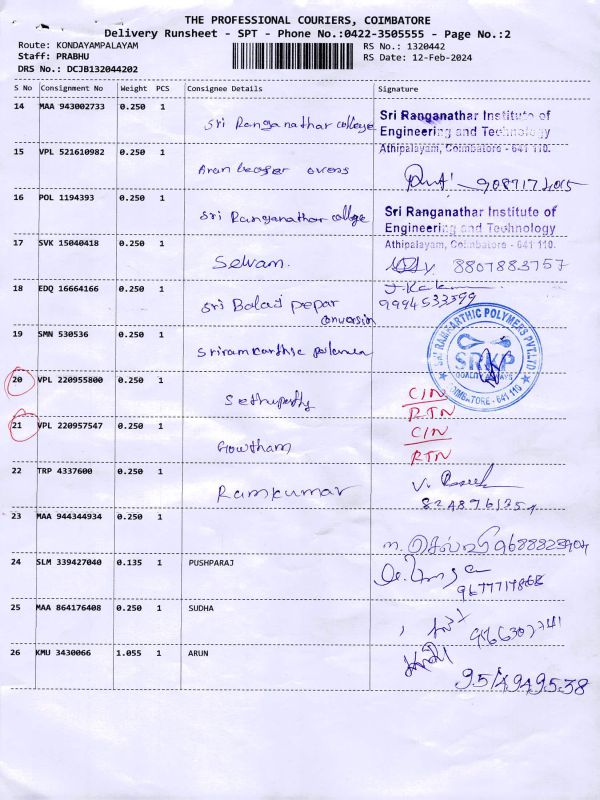 THE PROFESSIONAL COURIERS, COIMBATORE
Delivery Runsheet - SPT - Phone No.:0422-3505555 - Page No.:2
Route: KONDAYAMPALAYAM RS No.: 1320442
Staff: PRABHU RS Date: 12-Feb-2024
DRS No.: DCJB132044202
S No Consignment No Weight PCS Consignee Details Signature
14 MAA 943002733 0.250 1 Sri Ranganathar college
Sri Ranganathar Institute of
Engineering and Technology
Athipalayam, Coimbatore - 641 110.
15 VPL 521610982 0.250 1 Arun
16 POL 1194393 0.250 1 Sri Ranganathar college
Sri Ranganathar Institute of
Engineering and Technology
Athipalayam, Coimbatore - 641 110.
17 SVK 15040418 0.250 1 Selvam. 8807883757
18 EDQ 16664166 0.250 1 Sri Balaji pepar conversion
9994533399
19 SMN 530536 0.250 1
SRI RAMKARTHIC POLYMERS PVT.LTD
SRKP
QUALITY ALWAYS
COIMBATORE - 641 110
20 VPL 220955800 0.250 1 Sethupathy C/N
RTN
21 VPL 220957547 0.250 1 Gowtham C/N
RTN
22 TRP 4337600 0.250 1 Ramkumar
23 MAA 944344934 0.250 1
24 SLM 339427040 0.135 1 PUSHPARAJ
25 MAA 864176408 0.250 1 SUDHA
26 KMU 3430066 1.055 1 ARUN